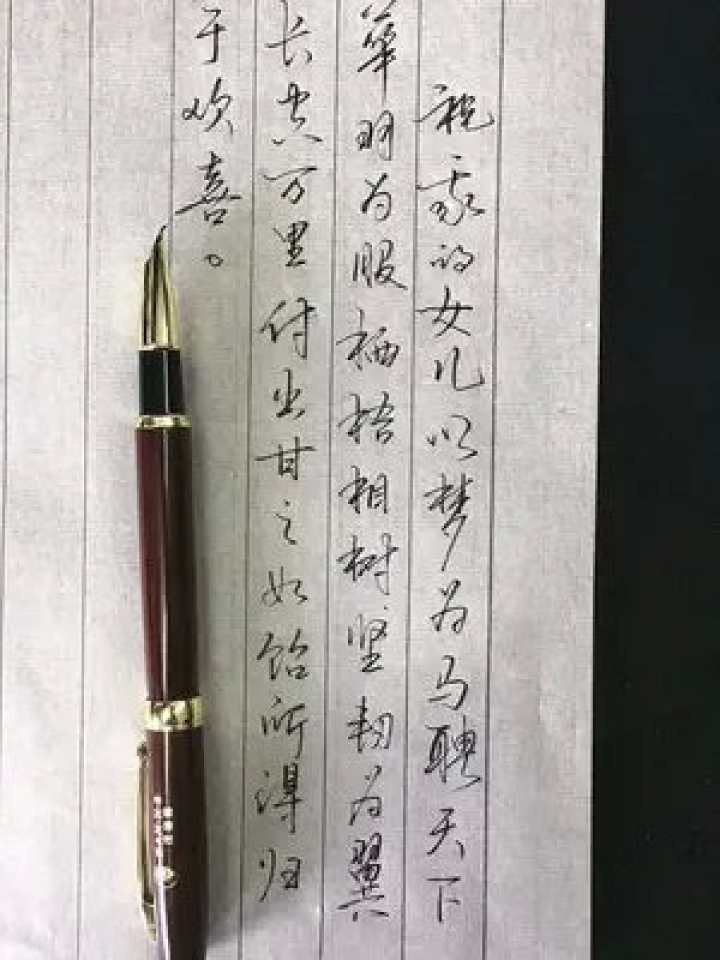 祝我的女儿以梦为马聘天下
华羽为服栖梧相树坚韧为翼
长空万里付出甘之如饴所得归
于欢喜。